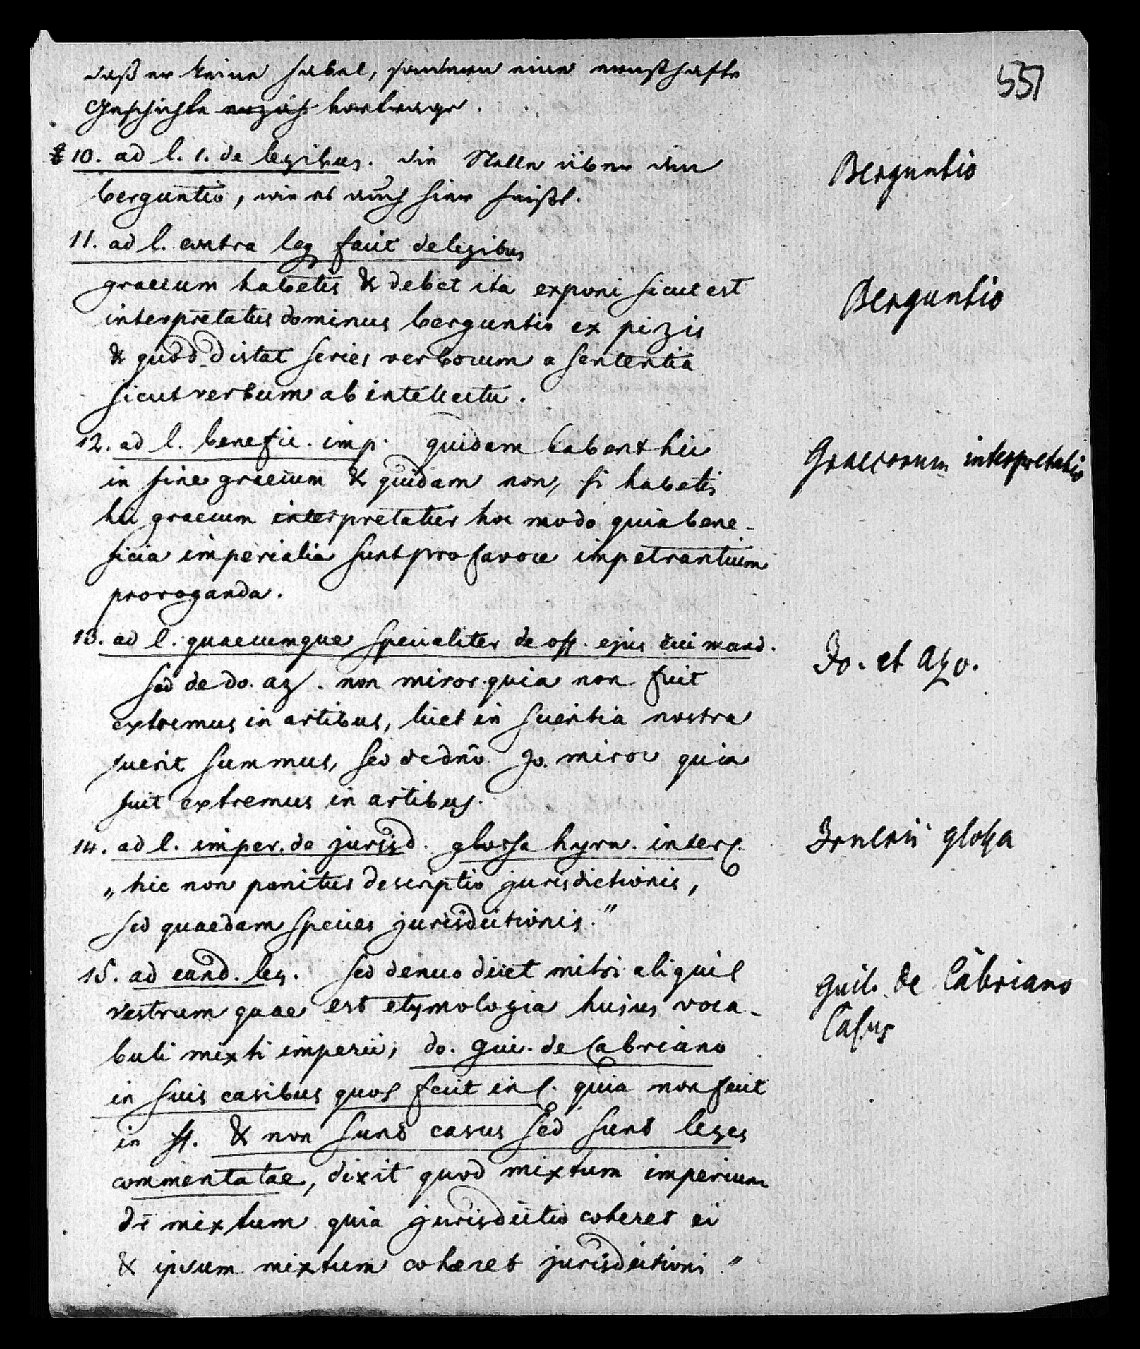 537
daß er keine Fabel, sondern eine ernsthafte
Geschichte erzäh vortrage.
10. ad l. 1. de legibus. die Stelle über den
Berguntio
berguntio, wie er auch hier heißt.
11. ad l. contra leg facit de legibus
graecum habetis & debet ita exponi sicut est
Berguntio
interpretatus dominus berguntio ex pizis
& quod distat series verborum a sententia
sicut verbum ab intellectu.
12. ad l. benefic. imp. quidam habent hic
Graecorum interpretatio
in fine graecum & quidam non, si habetis
hic graecum interpretatur hoc modo quia bene-
ficia imperialia sunt pro favore impetrantium
proroganda.
13. ad l. quaecumque specialiter de off. ejus cui mand.
Jo. et Azo.
sed de do. az. non miror quia non fuit
extremus in artibus, licet in scientia nostra
fuerit summus, sed de dño Jo. miror quia
fuit extremus in artibus.
14. ad l. imper. de jurisd. glossa hyrn. interl.
Irnerii glossa
„hic non ponitur descriptio jurisdictionis,
sed quaedam species jurisdictionis."
15. ad eand. leg. Sed denuo dicet mihi aliquis
Guil. de Cabriano
vestrum quae est etymologia huius voca-
Casus
buli mixti imperii; do. Gui. de Cabriano
in suis casibus quos fecit in C. quia non fecit
in ff. & non sunt casus sed sunt leges
commentatae, dixit quod mixtum imperium
dr mixtum quia jurisdictio coheret ei
& ipsum mixtum coheret jurisdictioni."